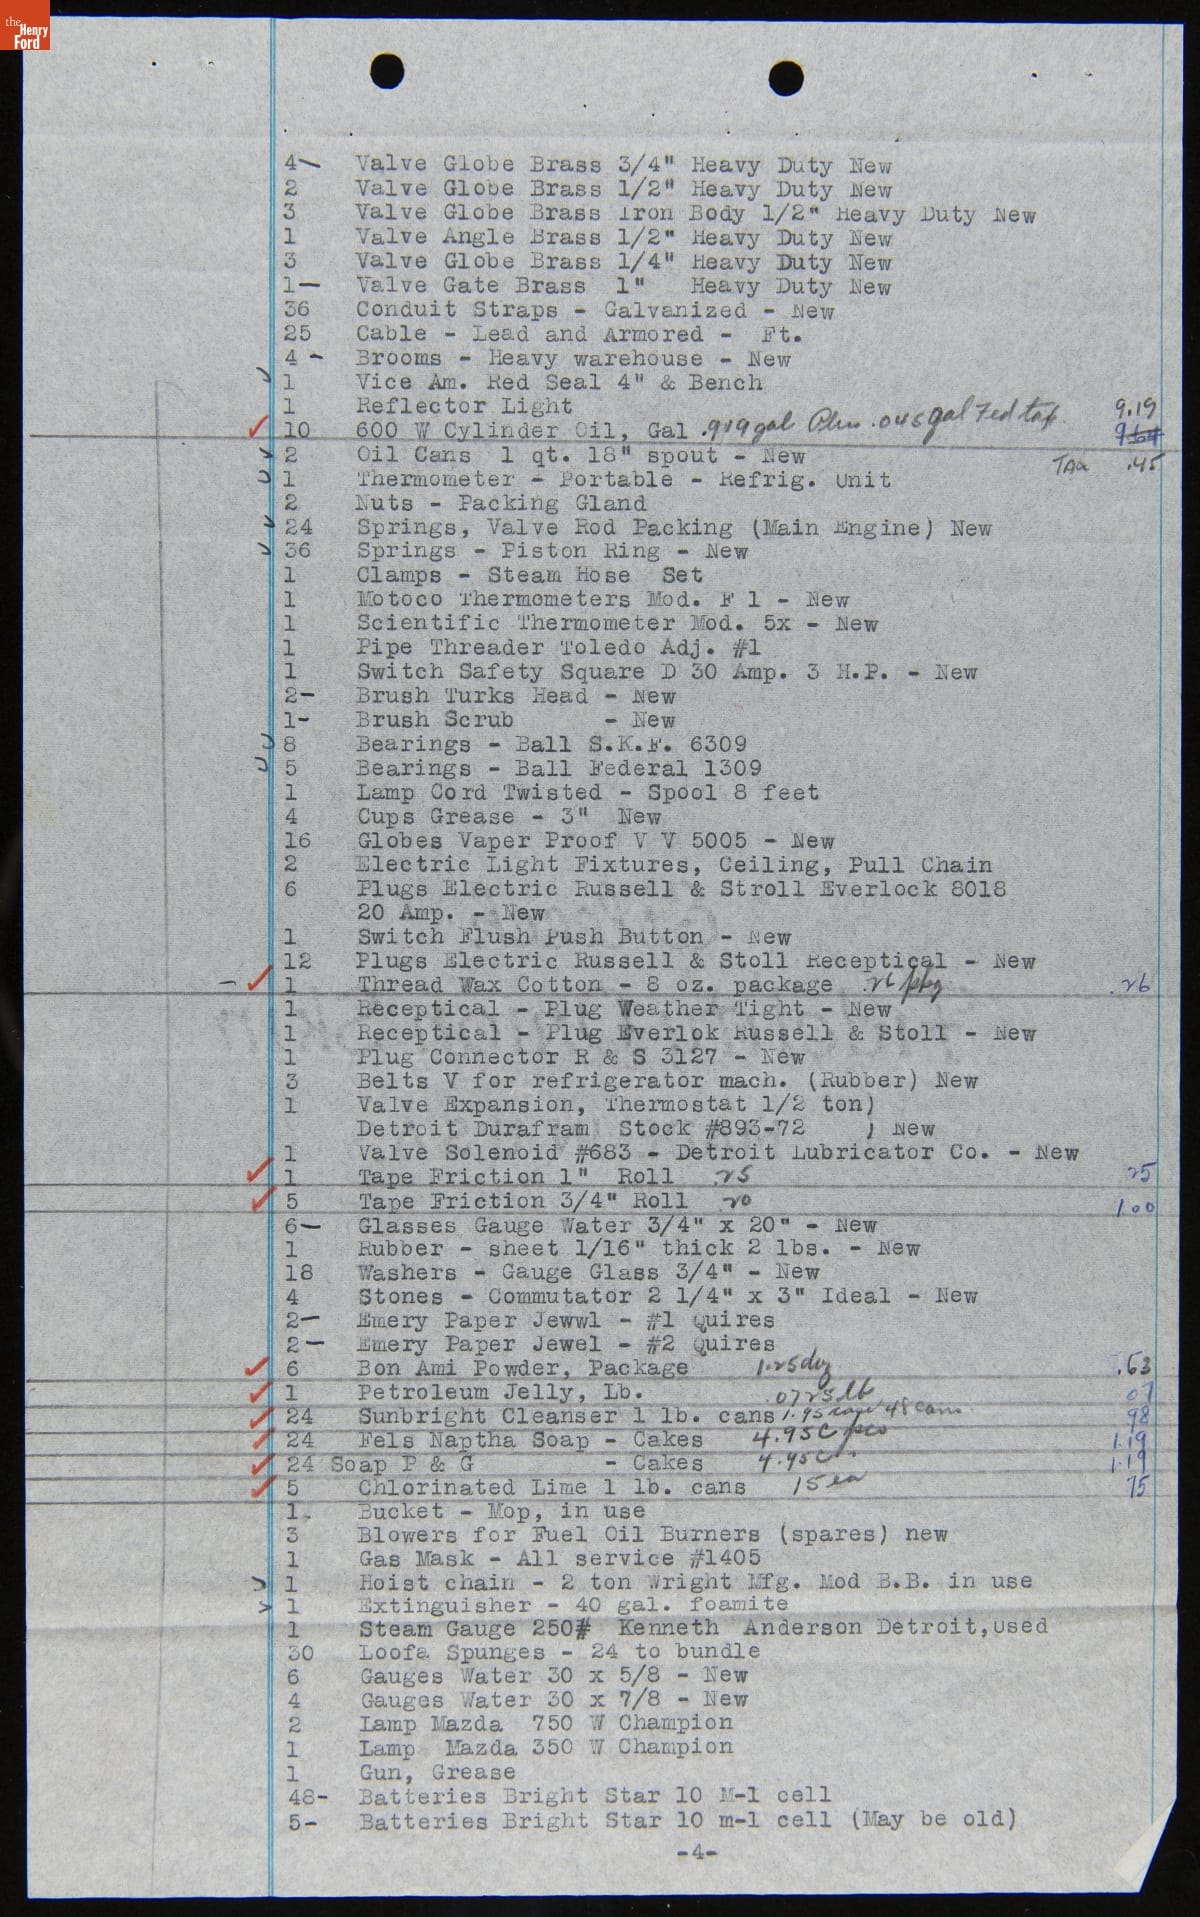 the Henry Ford
4- Valve Globe Brass 3/4" Heavy Duty New
2 Valve Globe Brass 1/2" Heavy Duty New
3 Valve Globe Brass Iron Body 1/2" Heavy Duty New
1 Valve Angle Brass 1/2" Heavy Duty New
3 Valve Globe Brass 1/4" Heavy Duty New
1- Valve Gate Brass 1" Heavy Duty New
36 Conduit Straps - Galvanized - New
25 Cable - Lead and Armored - Ft.
4 - Brooms - Heavy warehouse - New
1 Vice Am. Red Seal 4" & Bench
1 Reflector Light 9.19
10 600 W Cylinder Oil, Gal .919 gal Plus .045 gal Fed tax
2 Oil Cans 1 qt. 18" spout - New Tax .45
1 Thermometer - Portable - Refrig. Unit
2 Nuts - Packing Gland
24 Springs, Valve Rod Packing (Main Engine) New
36 Springs - Piston Ring - New
1 Clamps - Steam Hose Set
1 Motoco Thermometers Mod. F 1 - New
1 Scientific Thermometer Mod. 5x - New
1 Pipe Threader Toledo Adj. #1
1 Switch Safety Square D 30 Amp. 3 H.P. - New
2- Brush Turks Head - New
1- Brush Scrub - New
8 Bearings - Ball S.K.F. 6309
5 Bearings - Ball Federal 1309
1 Lamp Cord Twisted - Spool 8 feet
4 Cups Grease - 3" New
16 Globes Vaper Proof V V 5005 - New
2 Electric Light Fixtures, Ceiling, Pull Chain
6 Plugs Electric Russell & Stroll Everlock 8018
20 Amp. - New
1 Switch Flush Push Button - New
12 Plugs Electric Russell & Stoll Receptical - New
1 Thread Wax Cotton - 8 oz. package .26 pkg .26
1 Receptical - Plug Weather Tight - New
1 Receptical - Plug Everlok Russell & Stoll - New
1 Plug Connector R & S 3127 - New
3 Belts V for refrigerator mach. (Rubber) New
1 Valve Expansion, Thermostat 1/2 ton)
Detroit Durafram Stock #893-72 ) New
1 Valve Solenoid #683 - Detroit Lubricator Co. - New
1 Tape Friction 1" Roll .25 25
5 Tape Friction 3/4" Roll 20 1.00
6- Glasses Gauge Water 3/4" x 20" - New
1 Rubber - sheet 1/16" thick 2 lbs. - New
18 Washers - Gauge Glass 3/4" - New
4 Stones - Commutator 2 1/4" x 3" Ideal - New
2- Emery Paper Jewwl - #1 Quires
2- Emery Paper Jewel - #2 Quires
6 Bon Ami Powder, Package 1.25 dz .63
1 Petroleum Jelly, Lb. .0725 lb 07
24 Sunbright Cleanser 1 lb. cans 1.95 case 48 cans 98
24 Fels Naptha Soap - Cakes 4.95 C pcs 1.19
24 Soap P & G - Cakes 4.95 C 1.19
5 Chlorinated Lime 1 lb. cans 15 ea 75
1. Bucket - Mop, in use
3 Blowers for Fuel Oil Burners (spares) new
1 Gas Mask - All service #1405
1 Hoist chain - 2 ton Wright Mfg. Mod B.B. in use
1 Extinguisher - 40 gal. foamite
1 Steam Gauge 250# Kenneth Anderson Detroit, used
30 Loofa Spunges - 24 to bundle
6 Gauges Water 30 x 5/8 - New
4 Gauges Water 30 x 7/8 - New
2 Lamp Mazda 750 W Champion
1 Lamp Mazda 350 W Champion
1 Gun, Grease
48- Batteries Bright Star 10 M-1 cell
5- Batteries Bright Star 10 m-1 cell (May be old)
-4-